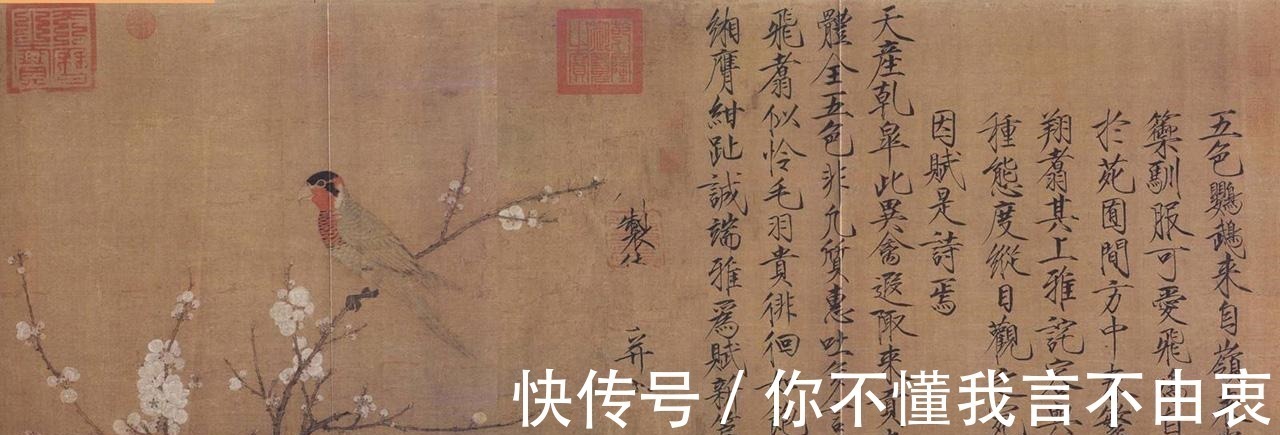 五色鸚鵡來自嶺
籞馴服可愛飛鳴自
於苑囿間方中
翔翥其上雅詫容與
種態度縱目觀之
因賦是詩焉
天產乾皋此異禽遐陬來貢
體全五色非凡質惠吐多言
飛翥似怜毛羽貴徘徊
緗膺紺趾誠端雅為賦新
製
并
快传号 / 你不懂我言不由衷